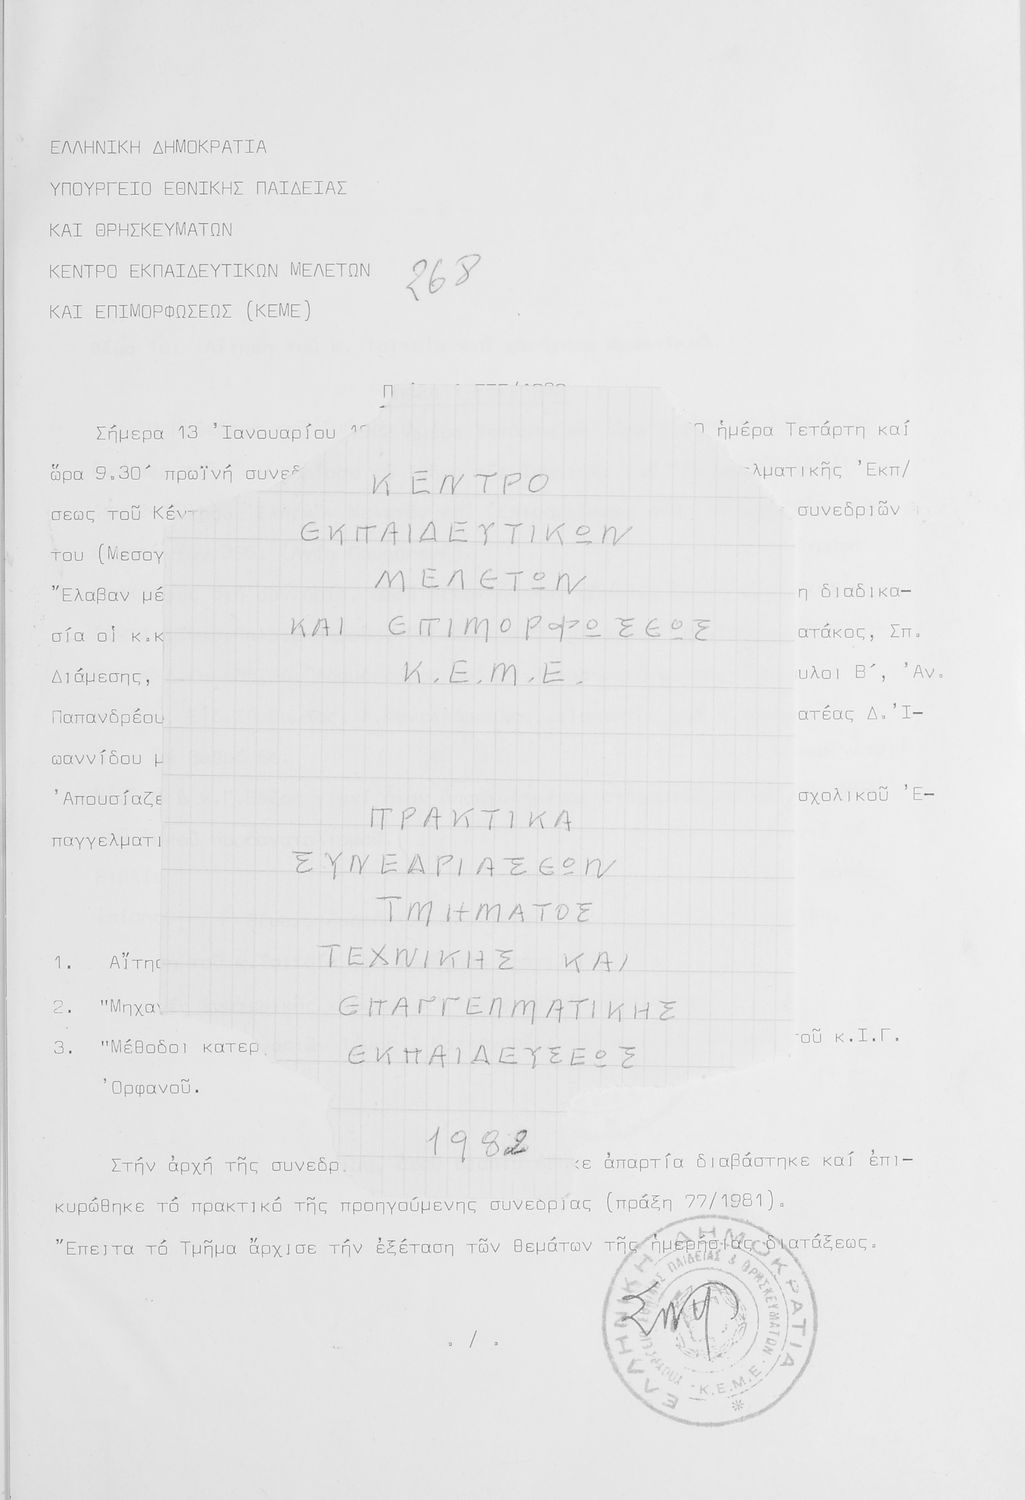 ΕΛΛΗΝΙΚΗ ΔΗΜΟΚΡΑΤΙΑ
ΥΠΟΥΡΓΕΙΟ ΕΘΝΙΚΗΣ ΠΑΙΔΕΙΑΣ
ΚΑΙ ΘΡΗΣΚΕΥΜΑΤΩΝ
ΚΕΝΤΡΟ ΕΚΠΑΙΔΕΥΤΙΚΩΝ ΜΕΛΕΤΩΝ
ΚΑΙ ΕΠΙΜΟΡΦΩΣΕΩΣ (ΚΕΜΕ)
268
Σήμερα 13 Ἰανουαρίου ἡμέρα Τετάρτη καί
ὥρα 9.30΄ πρωϊνή συνεδ λματικῆς Ἐκπ/
σεως τοῦ Κέντ συνεδριῶν
του (Μεσογ
Ἔλαβαν μέ η διαδικα-
σία οἱ κ.κ ατάκος, Σπ.
Διάμεσης, υλοι Β΄, Ἀν.
Παπανδρέου ατέας Δ. Ἰ-
ωαννίδου μ
Ἀπουσίαζε σχολικοῦ Ἐ-
παγγελματι
ΚΕΝΤΡΟ
ΕΚΠΑΙΔΕΥΤΙΚΩΝ
ΜΕΛΕΤΩΝ
ΚΑΙ ΕΠΙΜΟΡΦΩΣΕΩΣ
Κ.Ε.Μ.Ε.
ΠΡΑΚΤΙΚΑ
ΣΥΝΕΔΡΙΑΣΕΩΝ
ΤΜΗΜΑΤΟΣ
ΤΕΧΝΙΚΗΣ ΚΑΙ
ΕΠΑΓΓΕΛΜΑΤΙΚΗΣ
ΕΚΠΑΙΔΕΥΣΕΩΣ
1982
1. Αἴτησ
2. "Μηχαν
3. "Μέθοδοι κατερ τοῦ κ.Ι.Γ.
Ὀρφανοῦ.
Στήν ἀρχή τῆς συνεδρ κε ἀπαρτία διαβάστηκε καί ἐπι-
κυρώθηκε τό πρακτικό τῆς προηγούμενης συνεδρίας (πράξη 77/1981).
Ἔπειτα τό Τμῆμα ἄρχισε τήν ἐξέταση τῶν θεμάτων τῆς ἡμερήσιας διατάξεως.
. / .
ΕΛΛΗΝΙΚΗ ΔΗΜΟΚΡΑΤΙΑ
ΥΠΟΥΡΓΕΙΟ ΕΘΝΙΚΗΣ ΠΑΙΔΕΙΑΣ & ΘΡΗΣΚΕΥΜΑΤΩΝ
Κ.Ε.Μ.Ε.